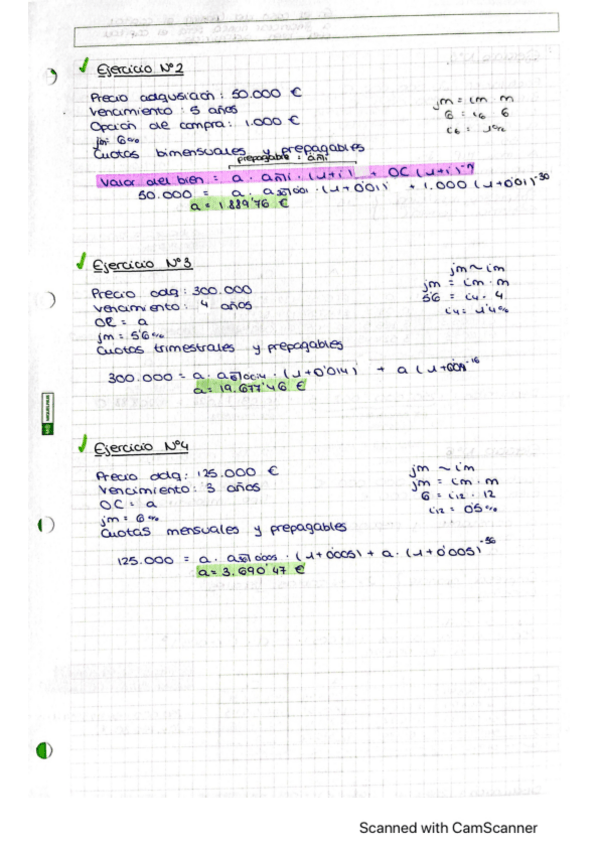 Ejercicio Nº2
Precio adquisición: 50.000 €
Vencimiento: 5 años
Opción de compra: 1.000 €
jm: 6%
Cuotas bimensuales y prepagables
jm = im · m
6 = i6 · 6
i6 = 1%
prepagable: äñi
Valor del bien = a · añi · (1+i) + OC (1+i)⁻ⁿ
50.000 = a · a30̅0'01 · (1+0'01) + 1.000 (1+0'01)⁻³⁰
a = 1889'76 €
Ejercicio Nº3
Precio adq: 300.000
Vencimiento: 4 años
OC = a
jm = 5'6%
Cuotas trimestrales y prepagables
jm ~ im
jm = im · m
5'6 = i4 · 4
i4 = 1'4%
300.000 = a · a16̅0'014 · (1+0'014) + a (1+0'014)⁻¹⁶
a = 19.677'46 €
Ejercicio Nº4
Precio adq: 125.000 €
Vencimiento: 3 años
OC = a
jm = 6%
Cuotas mensuales y prepagables
jm ~ im
jm = im · m
6 = i12 · 12
i12 = 0'5%
125.000 = a · a36̅0'005 · (1+0'005) + a · (1+0'005)⁻³⁶
a = 3.690'47 €
Scanned with CamScanner